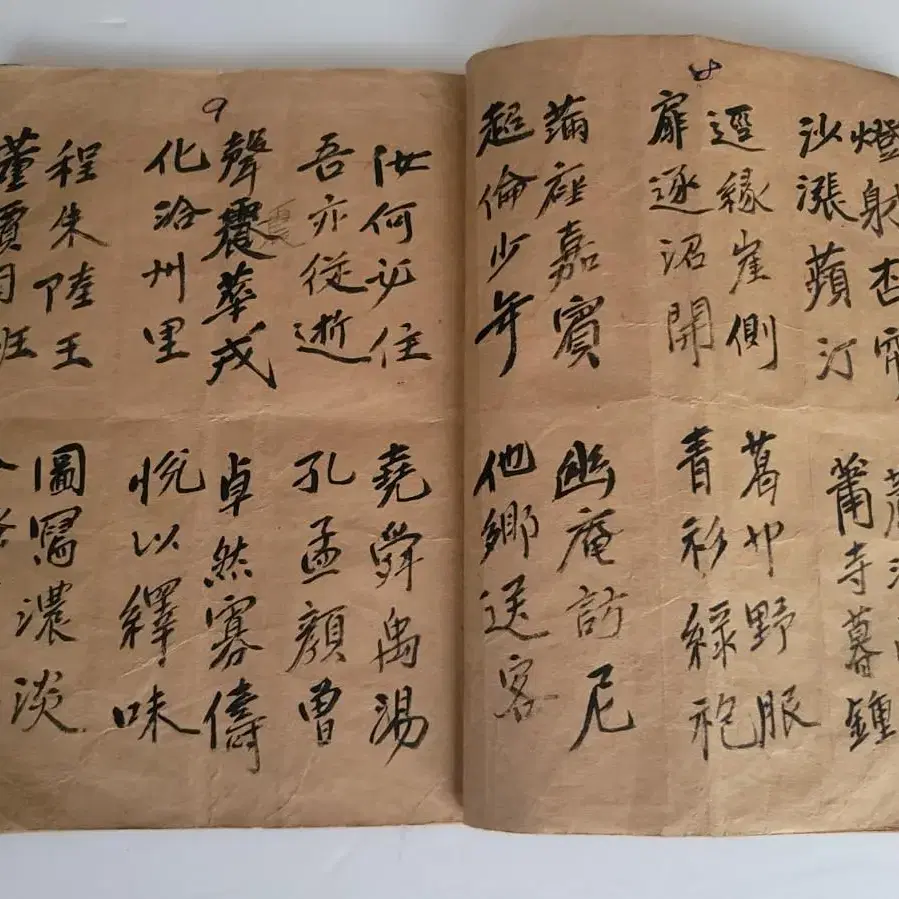 8
燈射杏
沙漲蘋汀
逕緣崖側
扉逐沼開
滿座嘉賓
超倫少年
蕭寺暮鍾
葛巾野服
青衫綠袍
幽庵訪尼
他鄉送客
9
汝何必住
吾亦從逝
震
聲震華戎
化洽州里
程朱陸王
董賈
堯舜禹湯
孔孟顏曾
卓然寡儔
悅以繹味
圖寫濃淡